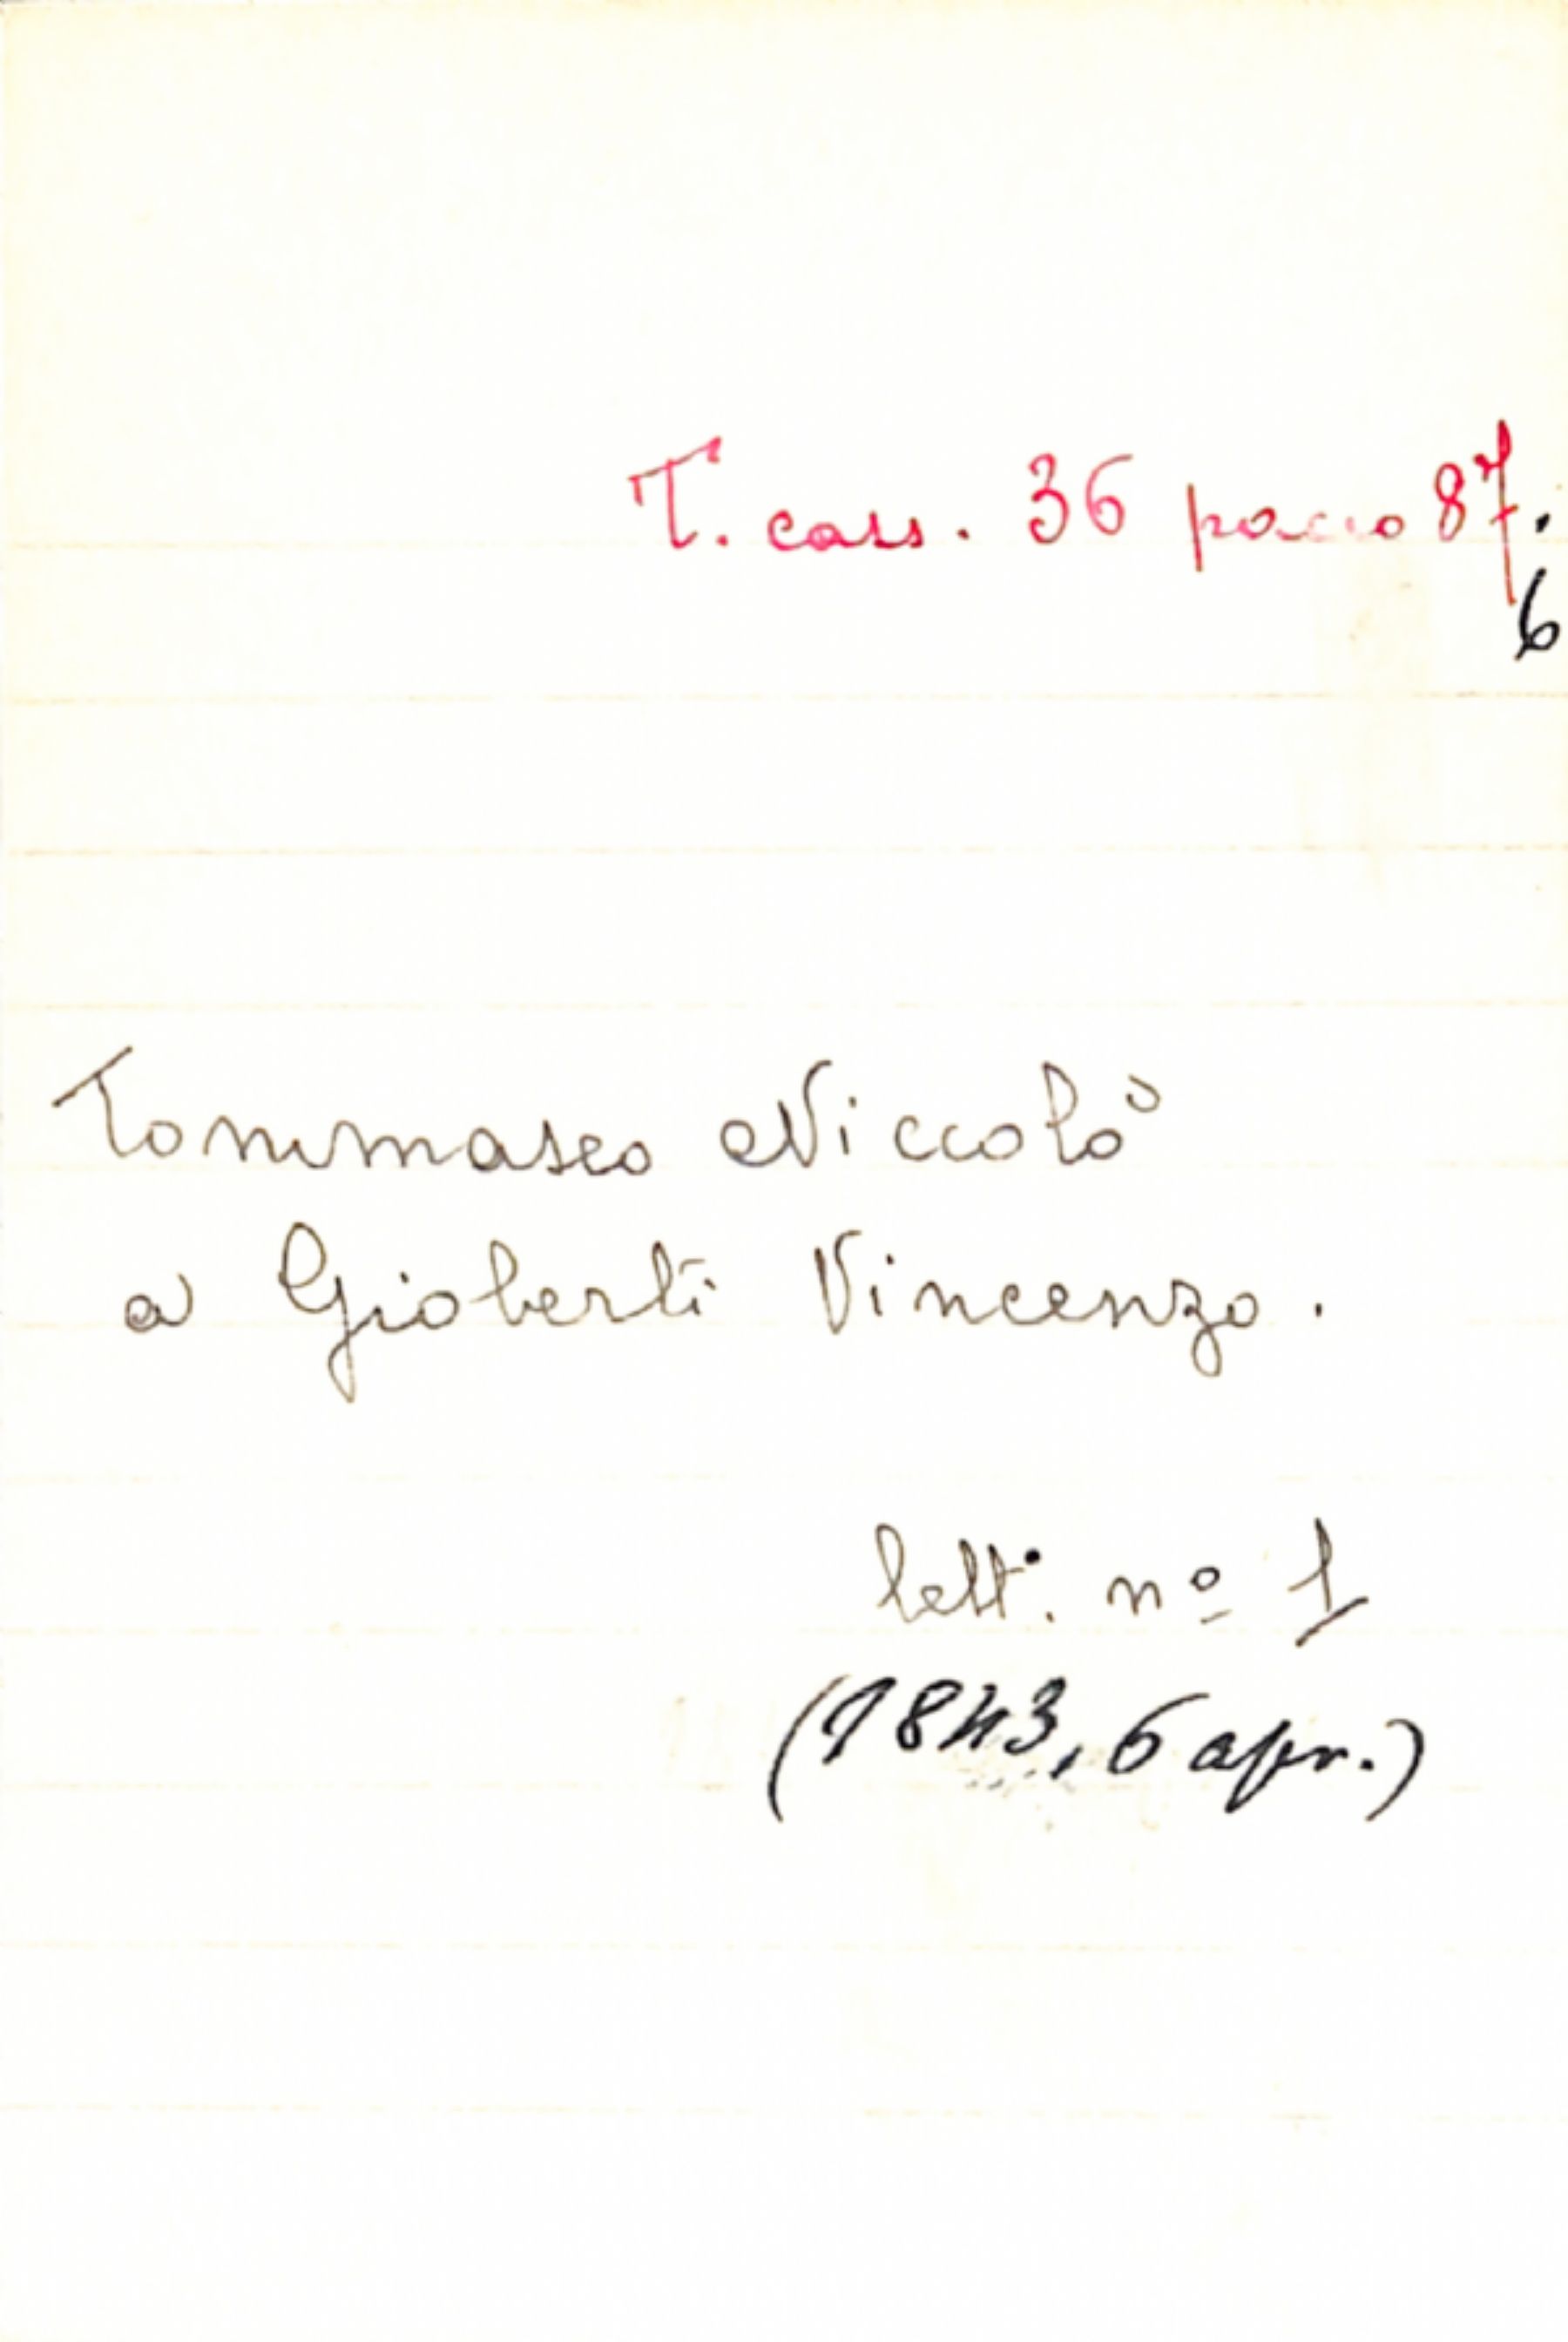 T. cass. 36 pacco 87.
6
Tommaseo Niccolò
a Gioberti Vincenzo.
lett. nº 1
(1843, 6 apr.)